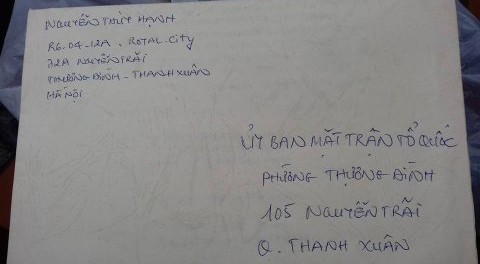 NGUYỄN THÚY HẠNH
R6.04-12A, ROYAL City
72A NGUYỄN TRÃI
THƯỢNG ĐÌNH - THANH XUÂN
HÀ NỘI
ỦY BAN MẶT TRẬN TỔ QUỐC
PHƯỜNG THƯỢNG ĐÌNH
105 NGUYỄN TRÃI
Q. THANH XUÂN